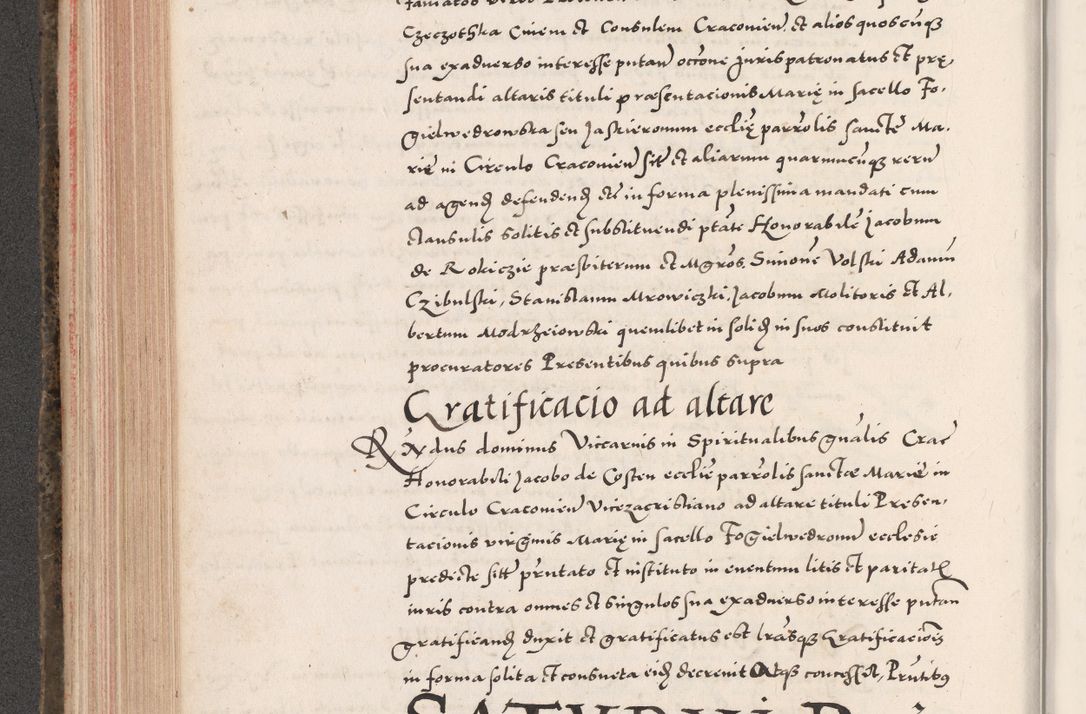 Czeczothka Civem et Consulem Cracovien̄ et alios quoscūqз
sua exadverso interesse putan̄ occōne juris patronatus et prę
sentandi altaris tituli præsentacionis Marię in sacello Fo-
gielwedrowska seu Jaskieronum ecclię parrōlis sanctę Ma-
rię in Circulo Cracovien̄ sit̄ et aliarum quarumcūqз rerū
ad agend̄ defendend̄ etc̄ in forma plenissima mandati cum
clausulis solitis et substituendi ptāte Honorabilē Jacobum
de Rokiczie præsbiterum et Mgrōs Simonē Volski Adamū
Czibulski, Stanislaum Mrowiczki, Jacobum Molitoris et Al-
bertum Modrzeiowski quemlibet in solid̄ in suos constituit
procuratores Presentibus quibus supra
Gratificacio ad altare
Rn̄dus dominus Viccarius in Spiritualibus gnālis Crac̄
Honorabili Jacobo de Costen ecclię parrōlis sanctæ Marię in
Circulo Cracovien̄ Vicezacristiano ad altare tituli Presen-
tacionis virginis Marię in sacello Fogielwedronum ecclesie
predicte sitt̄ prn̄tato et instituto in eventum litis et paritatē
iuris contra omnes et singulos sua exadverso interesse putan̄
gratificand̄ duxit et gratificatus est lrāsqз Gratificacionis
in forma solita et consueta eid̄ decrevit Atqз concessit, Prn̄tibus